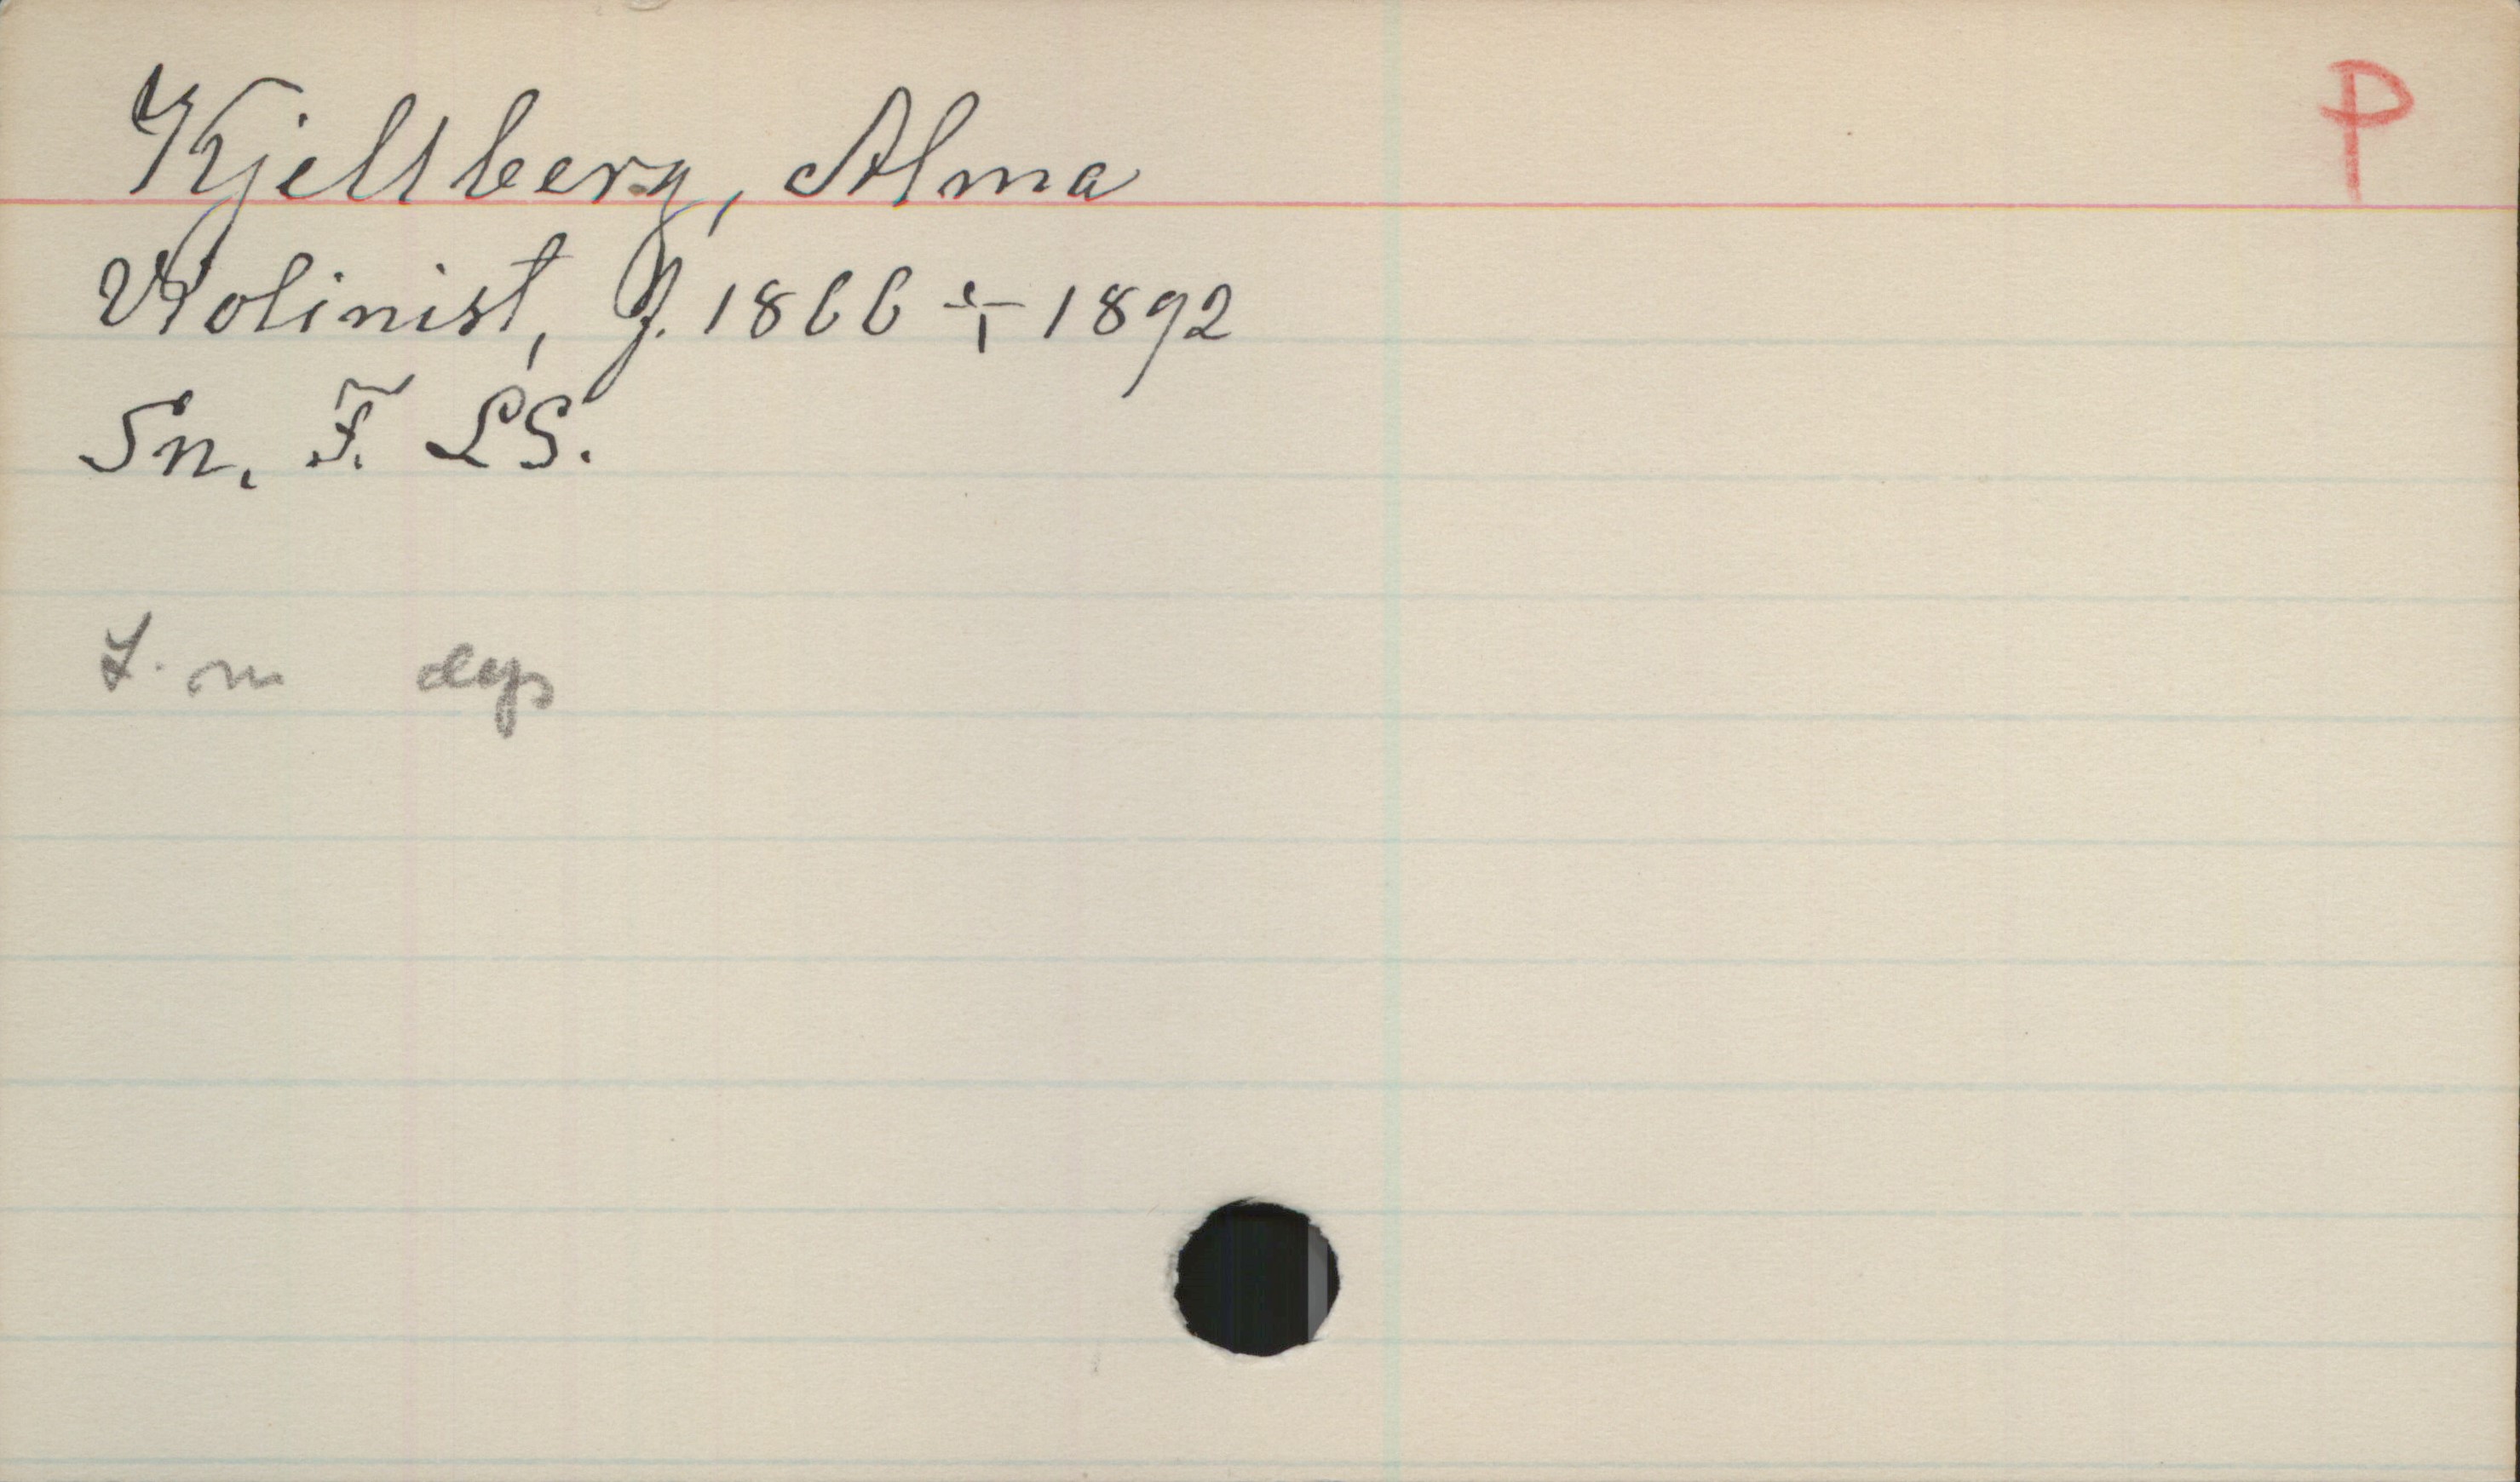 Kjellberg, Alma P
Violinist, f. 1866 † 1892
Sn. F. LS.